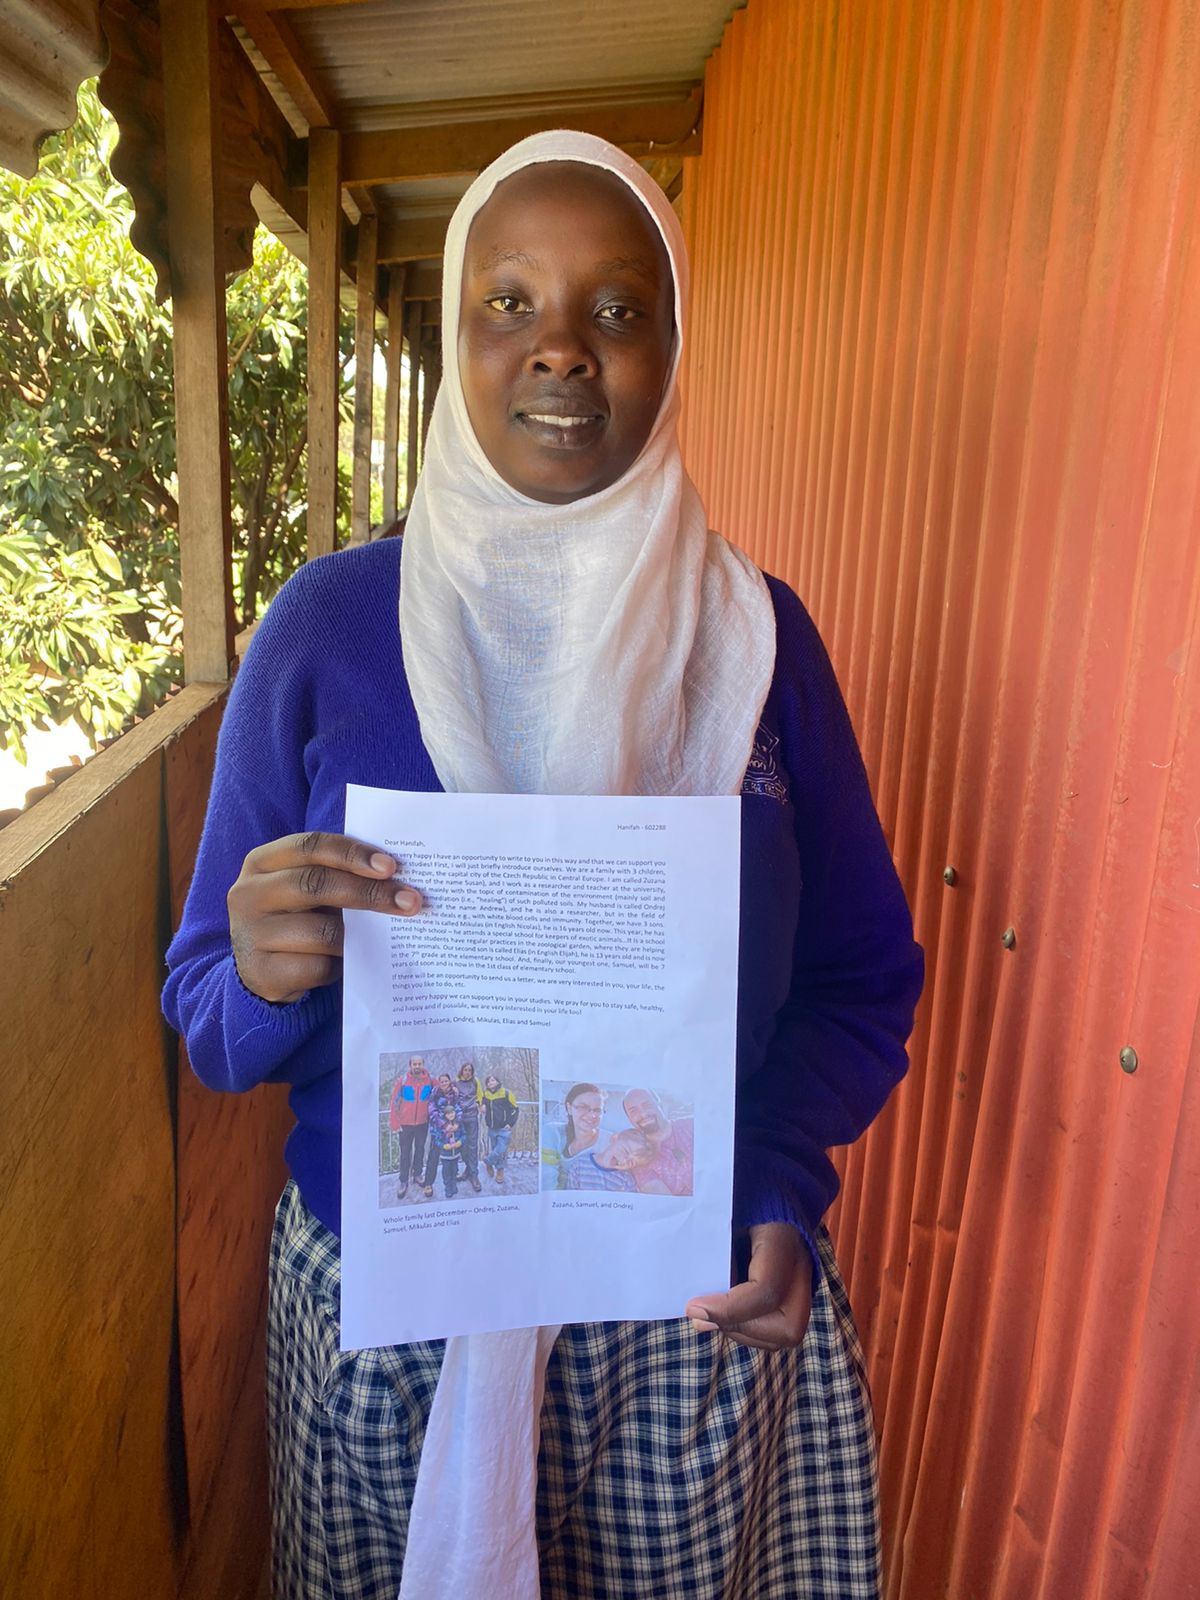 Hanifah - 602288
Dear Hanifah,
am very happy I have an opportunity to write to you in this way and that we can support you
your studies! First, I will just briefly introduce ourselves. We are a family with 3 children,
in Prague, the capital city of the Czech Republic in Central Europe. I am called Zuzana
form of the name Susan), and I work as a researcher and teacher at the university,
mainly with the topic of contamination of the environment (mainly soil and
remediation (i.e., "healing") of such polluted soils. My husband is called Ondrej
of the name Andrew), and he is also a researcher, but in the field of
he deals e.g., with white blood cells and immunity. Together, we have 3 sons.
The oldest one is called Mikulas (in English Nicolas), he is 16 years old now. This year, he has
started high school – he attends a special school for keepers of exotic animals...It is a school
where the students have regular practices in the zoological garden, where they are helping
with the animals. Our second son is called Elias (in English Elijah), he is 13 years old and is now
in the 7th grade at the elementary school. And, finally, our youngest one, Samuel, will be 7
years old soon and is now in the 1st class of elementary school.
If there will be an opportunity to send us a letter, we are very interested in you, your life, the
things you like to do, etc.
We are very happy we can support you in your studies. We pray for you to stay safe, healthy,
and happy and if possible, we are very interested in your life too!
All the best, Zuzana, Ondrej, Mikulas, Elias and Samuel
Whole family last December – Ondrej, Zuzana,
Samuel, Mikulas and Elias
Zuzana, Samuel, and Ondrej